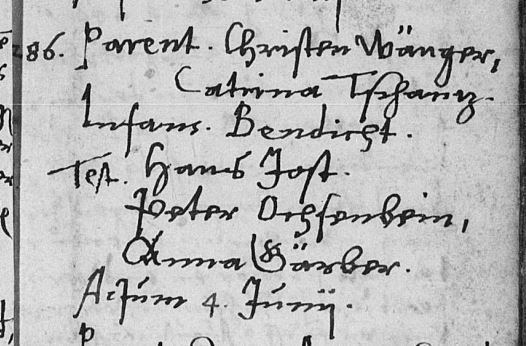 286. Parent. Christen Wänger,
Catrina Tschanz.
Infans. Bendicht.
Test. Hans Jost.
Peter Ochsenbein,
Anna Gärber.
Actum 4. Junij.